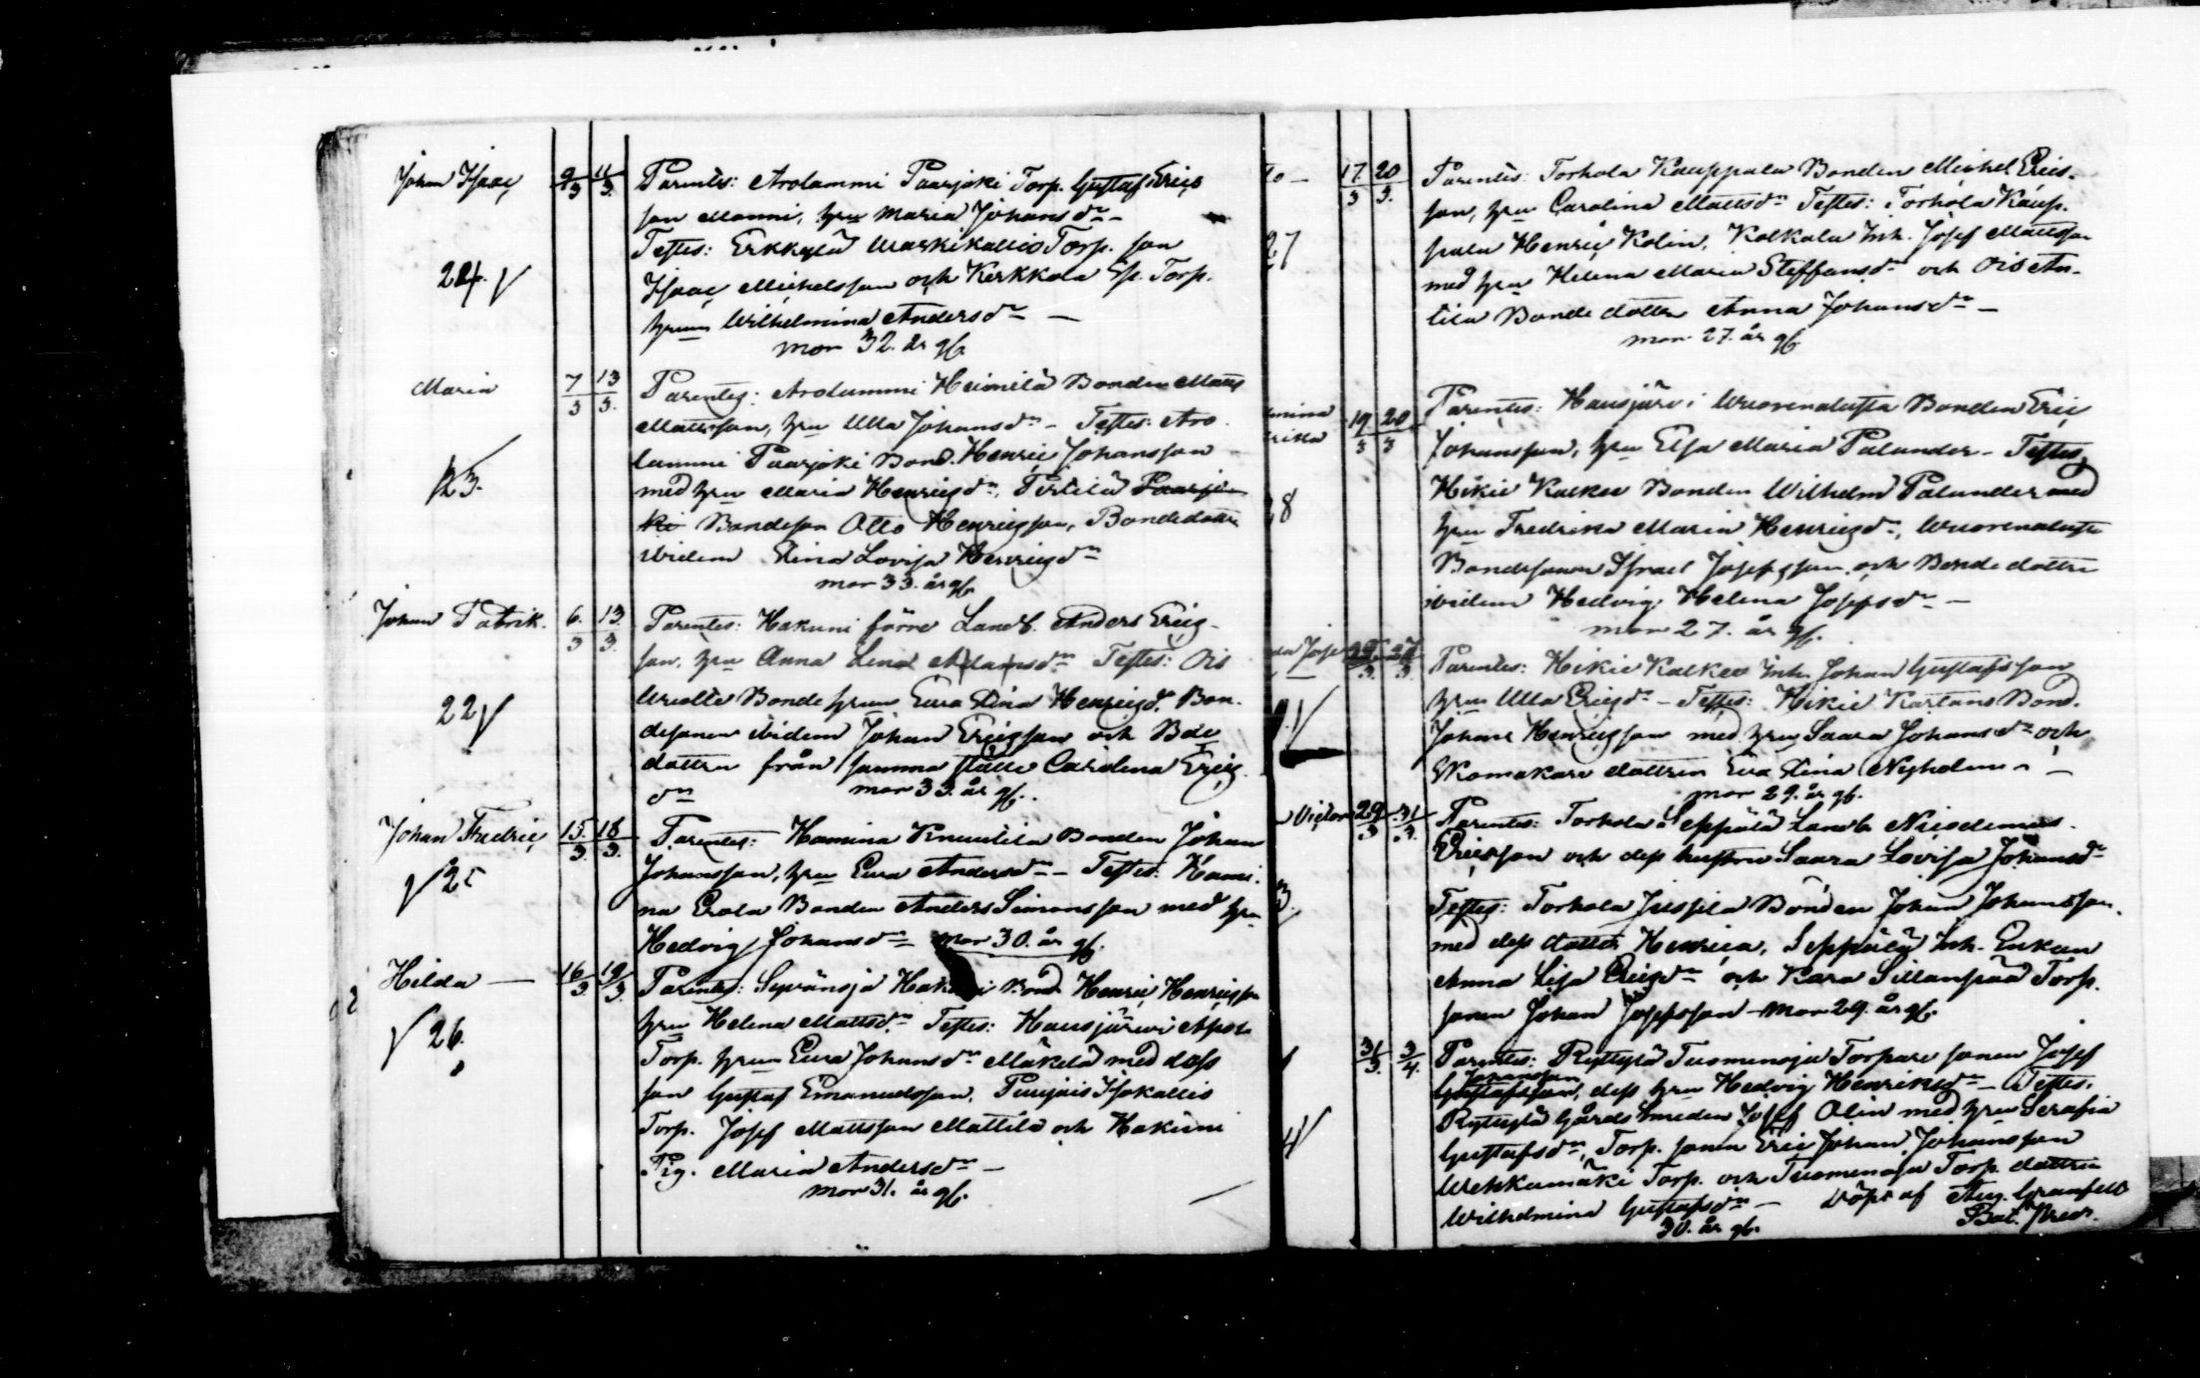 Johan Isaac 9/3 11/3. Parentes: Arolammi Paarjoki Torp. Gustaf Erics
son Monni, hru Maria Johansdr –
Testes: Erkkylä Uraskikallio Torp. son
24. Isaac Michelsson och Kerkkola Torp.
hrun Wilhelmina Andersdr –
mor 32. år gl.
Maria 7/3 13/3. Parentes: Arolammi Heimilä Bonden Matts
Mattsson, hru Ulla Johansdr – Testes: Aro
lammi Paarjoki Bond. Henric Johansson
23. med hru Maria Henricsdr, Pirtilä Paarjo
ki Bondeson Otto Henricsson, Bondedottr
ibidem Stina Lovisa Henricsdr
mor 33. år gl.
Johan Patrik. 6./3 13./3. Parentes: Hakuni förre Landb. Anders Erics-
son, hru Anna Lena Adamsdr Testes: Ois
Uriolle Bonde hrun Eva Stina Henricsdr. Bon.
22 desonen ibidem Johan Ericsson och Bde
dottren från samma ställe Carolina Erics
dr mor 33. år gl.
Johan Fredric 15./3. 18/3. Parentes: Hamina Knuutila Bonden Johan
Johansson, hru Eva Andersdr – Testes: Hami.
25 na Erola Bonden Anders Simonsson med hru
Hedvig Johansdr mor 30. år gl.
Hilda — 16/3 19/3. Parentes: Syvänoja Bond Henric Henricsson
hru Helena Mattsdr. Testes: Hausjärvi
26. Torp. hrun Eva Johansdr Mäkelä med dess
son Gustaf Emanuelsson, Puujois Isokallio
Torp. Josef Mattsson Mattila och Hakuni
Pig. Maria Andersdr –
mor 31. år gl.
17./3 20/3. Parentes: Torhola Kauppala Bonden Michel Erics.
son, hru Carolina Mattsdr Testes: Torhola Kaup.
27 pala Henric Kolin, Kolkala Inh. Josef Mattsson
med hru Helena Maria Steffansdr och Ois An-
tila Bonde dottren Anna Johansdr –
mor 27. år gl.
mina 19/3 20/3 Parentes: Hausjärvi Wuorenalusta Bonden Eric
Johansson, hru Elsa Maria Palander – Testes,
8 Hikiä Kalkee Bonden Wilhelm Palander med
hru Fredrika Maria Henricsdr, Wuorenalusta
Bondesonen Israel Josefsson och Bonde dottren
ibidem Hedvig Helena Josefsdr –
mor 27. år gl.
Parentes: Hikiä Kalkee Inh. Johan Gustafsson
hru Ulla Ericsdr – Testes: Hikiä Kartano Bond.
Johan Henricsson med hru Saara Johansdr och
Skomakare dottren Eva Stina Nyholm –
mor 29. år gl.
Victor 29/3 31/3. Parentes: Torhola Seppälä Landb. Nicodemus
Ericsson och dess hustru Saara Lovisa Johansdr
3. Testes: Torhola Jussila Bonden Johan Johansson.
med dess dotter Henrica, Seppälä Inh. Enkan
Anna Lisa Ericsdr och Kara Sillanpää Torp.
sonen Johan Josefsson – mor 29. år gl.
31/3. 3/4. Parentes: Ryttylä Tuomenoja Torpare sonen Josef
Johansson
Gustafsson, dess hru Hedvig Henriksdr – Testes.
4 Ryttylä Gårds Smeden Josef Olin med hru Serafia
Gustafsdr, Torp. sonen Eric Johan Johansson
Wehkamäki Torp. och Tuomenoja Torp. dottren
Wilhelmina Gustafsdr – Döpt af Aug. Granfelt
30. år gl.